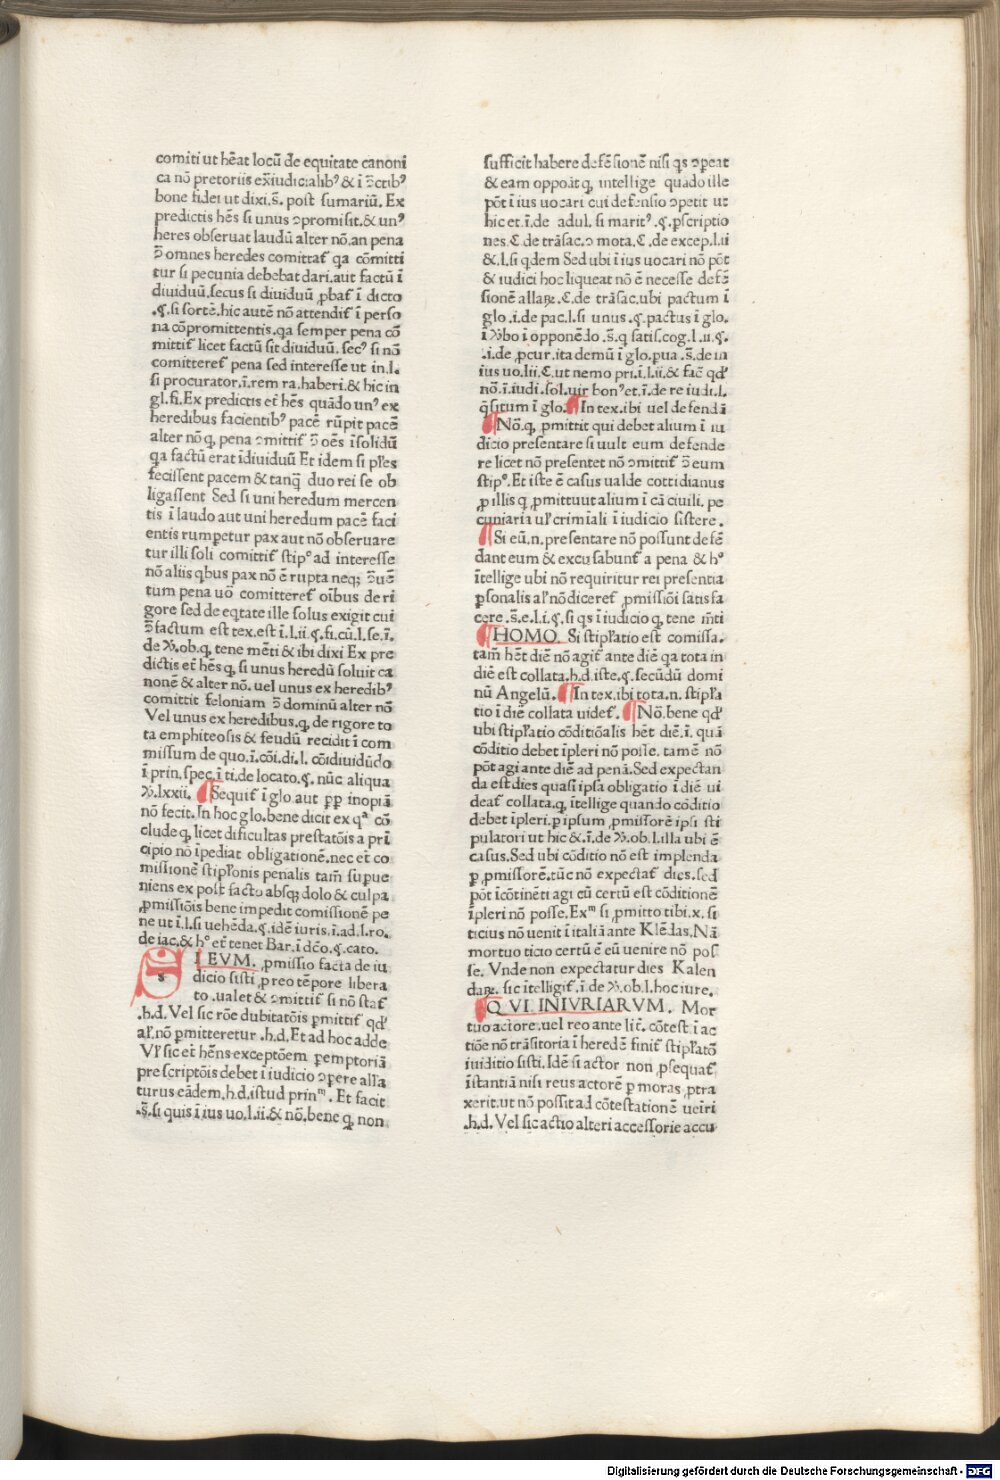 comiti ut hēat locū de equitate canoni
ca nō pretoriis ex̄iudicialibꝰ & ī ɔ̄ctibꝰ
bone fidei ut dixi.s̄. post sumariū. Ex
predictis hēs si unus ɔpromisit.& unꝰ
heres obseruat laudū alter nō.an pena
ɔ̄ omnes heredes comittat᷑ qa cōmitti
tur si pecunia debebat dari.aut factū ī
diuiduū.secus si diuiduū ꝓbat᷑ ī dicto
.§.si sortē.hic autē nō attendit᷑ ī perso
na cōpromittentis.qa semper pena cō
mittit᷑ licet factū sit diuiduū.secꝰ si nō
comitteret᷑ pena sed interesse ut in.l.
si procurator.ī.rem ra.haberi.& hic in
gl.fi.Ex predictis et̄ hēs quādo unꝰ ex
heredibus facientibꝰ pacē rūpit pacē
alter nō q, pena ɔmittit᷑ ɔ̄ oēs īsolidū
qa factū erat īdiuiduū Et idem si pl̄es
fecissent pacem & tanq̄ duo rei se ob
ligassent Sed si uni heredum mercen
tis ī laudo aut uni heredum pacē faci
entis rumpetur pax aut nō obseruare
tur illi soli comittit᷑ stipᵒ ad interesse
nō aliis qbus pax nō ē rupta neqꝫ ɔ̄uē
tum pena uō comitteret᷑ oībus de ri
gore sed de eqtate ille solus exigit cui
ɔ̄ factum est tex.est ī.l.ii.§.fi.cū.l.se.ī.
de ꝟ.ob.q, tene mēti & ibi dixi Ex pre
dictis et̄ hēs q, si unus heredū soluit ca
nonē & alter nō. uel unus ex heredibꝰ
comittit feloniam ɔ̄ dominū alter nō
Vel unus ex heredibus.q, de rigore to
ta emphiteosis & feudū recidit ī com
missum de quo.ī.cōi.di.l. cōidiuidūdo
ī prin.spec.ī ti.de locato.§. nūc aliqua
ꝟ.lxxii. ¶ Sequit᷑ ī glo.aut ꝓp inopiā
nō fecit.In hoc glo.bene dicit ex qᵃ cō
clude q, licet dificultas prestatōis a pri
cipio nō īpediat obligationē.nec et̄ co
missionē stipl̄onis penalis tam̄ supue
niens ex post facto absqꝫ dolo & culpa
ꝓmissiōis bene impedit comissionē pe
ne ut ī.l.si uehēda.§.idē iuris.ī.ad.l.ro.
de iac.& hᵒ et̄ tenet Bar.ī dc̄o.§.cato.
SI EVM. ꝓmissio facta de iu
dicio sisti ꝓ reo tēpore libera
to .ualet & ɔmittit᷑ si nō stat᷑
.h.d. Vel sic rōe dubitatōis ꝓmittit᷑ qd᷑
al̄.nō ꝓmitteretur .h.d.Et ad hoc adde
Vl̄ sic et̄ hēns exceptōem ꝑemptoriā
prescriptōis debet ī iudicio ɔpere alīa
turus eādem.h.d.istud prinᵐ. Et facit
.s̄.si quis ī ius uo.l.ii.& nō.bene q, non
sufficit habere defēsionē nisi qs ɔpeat
& eam opponat q, intellige quādo ille
pōt ī ius uocari cui defensio ɔpetit ut
hic et.ī.de adul.si maritꝰ.§.pscriptio
nes.C de trāsac.ɔ mota.C.de excep.l.ii
&.l.si qdem Sed ubi ī ius uocari nō pōt
& iudici hoc liqueat nō ē necesse defē
sionē allaꝝ.C.de trāsac.ubi pactum ī
glo.ī.de pac.l.si unus .§.pactus ī glo.
ī ꝟbo ī opponēdo .s̄.q satis.cog.l.ii.§.
.ī.de ꝓcur.ita demū ī glo.pua .s̄.de in
ius uo.lii.C.ut nemo pri.ī.l.ii.& fac̄ qd᷑
nō.ī.iudi.sol.uir bonꝰ et.ī.de re iudi.l.
q̄situm ī glo. ¶ In tex.ibi uel defendi
¶ Nō.q, pmittit qui debet alium ī iu
dicio presentare si uult eum defende
re licet nō presentet nō ɔmittit᷑ ɔ̄ eum
stipᵒ.Et iste ē casus ualde cottidianus
ꝓ illis q, pmittuut alium ī cā ciuili. pe
cuniaria ul̄ crimīali ī iudicio sistere.
¶ Si eū.n.presentare nō possunt defē
dant eum & excusabunt᷑ a pena & hᵒ
ītellige ubi nō requiritur rei presentia
ꝑsonalis al̄ nō diceret᷑ ꝓmissiōi satisfa
cere .s̄.e.l.i.§.si qs ī iudicio q, tene m̄ti
¶ HOMO. Si stipl̄atio est comissa.
tam̄ hēt diē nō agit᷑ ante diē qa tota in
diē est collata.h.d.iste.§.secūdū domi
nū Angelū. ¶ In tex.ibi tota.n. stipl̄a
tio ī diē collata uidet᷑. ¶ Nō.bene qd᷑
ubi stipl̄atio cōditiōalis hēt diē.ī. quā
cōditio debet īpleri nō posse. tamē nō
pōt agi ante diē ad penā.Sed expectan
da est dies quasi ipsa obligatio ī diē ui
deat᷑ collata.q, ītellige quando cōditio
debet īpleri.p ipsum ꝓmissorē ipsi sti
pulatori ut hic &.ī.de ꝟ.ob.l.illa ubi ē
casus.Sed ubi cōditio nō est implenda
ꝑ ꝓmissorē.tūc nō expectat᷑ dies.sed
pōt īcōtinēti agi cū certū est cōditionē
īpleri nō posse. Exᵐ si ꝓmitto tibi.x. si
ticius nō uenit ī italiā ante Klēdas.Nā
mortuo ticio certū ē eū uenire nō pos
se. Vnde non expectatur dies Kalen
daꝝ. sic ītelligit᷑.ī.de ꝟ.ob.l.hoc iure.
¶ QVI INIVRIARVM. Mor
tuo actore.uel reo ante lit̄. cōtest.ī ac
tiōe nō trāsitoria ī heredē finit᷑ stipl̄atō
iuiditio sisti.Idē si actor non ꝓsequat᷑
īstantiā nisi reus actorē ꝑ moras ꝓtra
xerit.ut nō possit ad cōtestationē ueīri
.h.d. Vel sic actio alteri accessorie accu